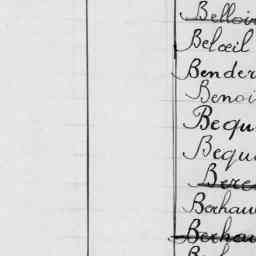 Belloi
Belœil
Bender
Benoi
Bequ
Beque
Bere
Berhau
Berhau